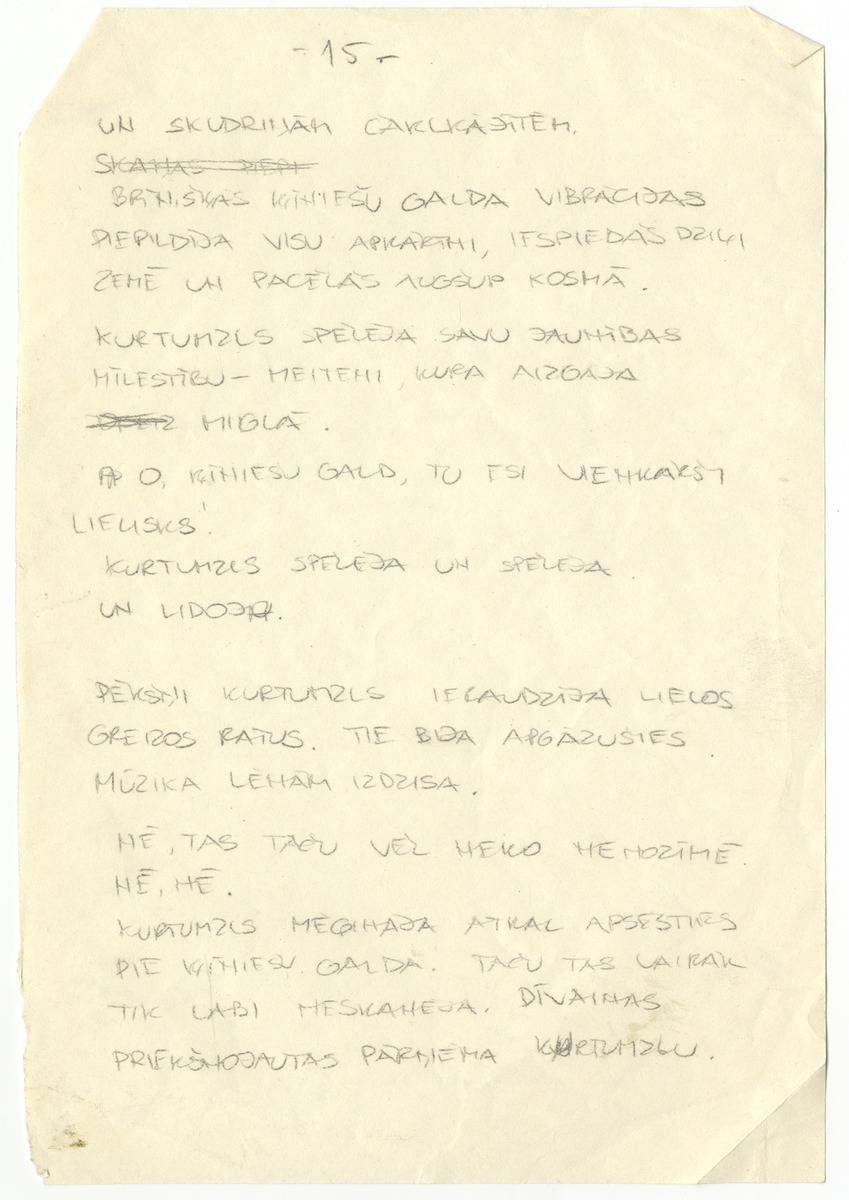 - 15 -
UN SKUDRIŅĀM CAKLKĀJĪTĒM.
SKAŅAS PIEPI
BRĪNIŠĶAS ĶĪNIEŠU GALDA VIBRĀCIJAS
PIEPILDĪJA VISU APKĀRTNI, IESPIEDĀS DZIĻI
ZEMĒ UN PACĒLĀS AUGŠUP KOSMĀ.
KURTUMZLS SPĒLĒJA SAVU JAUNĪBAS
MĪLESTĪBU - MEITENI, KURA AIZGĀJA
MIGLĀ.
O, ĶĪNIEŠU GALD, TU ESI VIENKĀRŠI
LIELISKS!
KURTUMZLS SPĒLĒJA UN SPĒLĒJA
UN LIDOJA.
PĒKŠŅI KURTUMZLS IERAUDZĪJA LIELOS
GREIZOS RATUS. TIE BIJA APGĀZUŠIES.
MŪZIKA LĒNĀM IZDZISA.
NĒ, TAS TAČU VĒL NEKO NENOZĪMĒ.
NĒ, NĒ.
KURTUMZLS MĒĢINĀJA ATKAL APSĒSTIES
PIE ĶĪNIEŠU GALDA. TAČU TAS VAIRĀK
TIK LABI NESKANĒJA. DĪVAINAS
PRIEKŠNOJAUTAS PĀRŅĒMA KURTUMZLU.